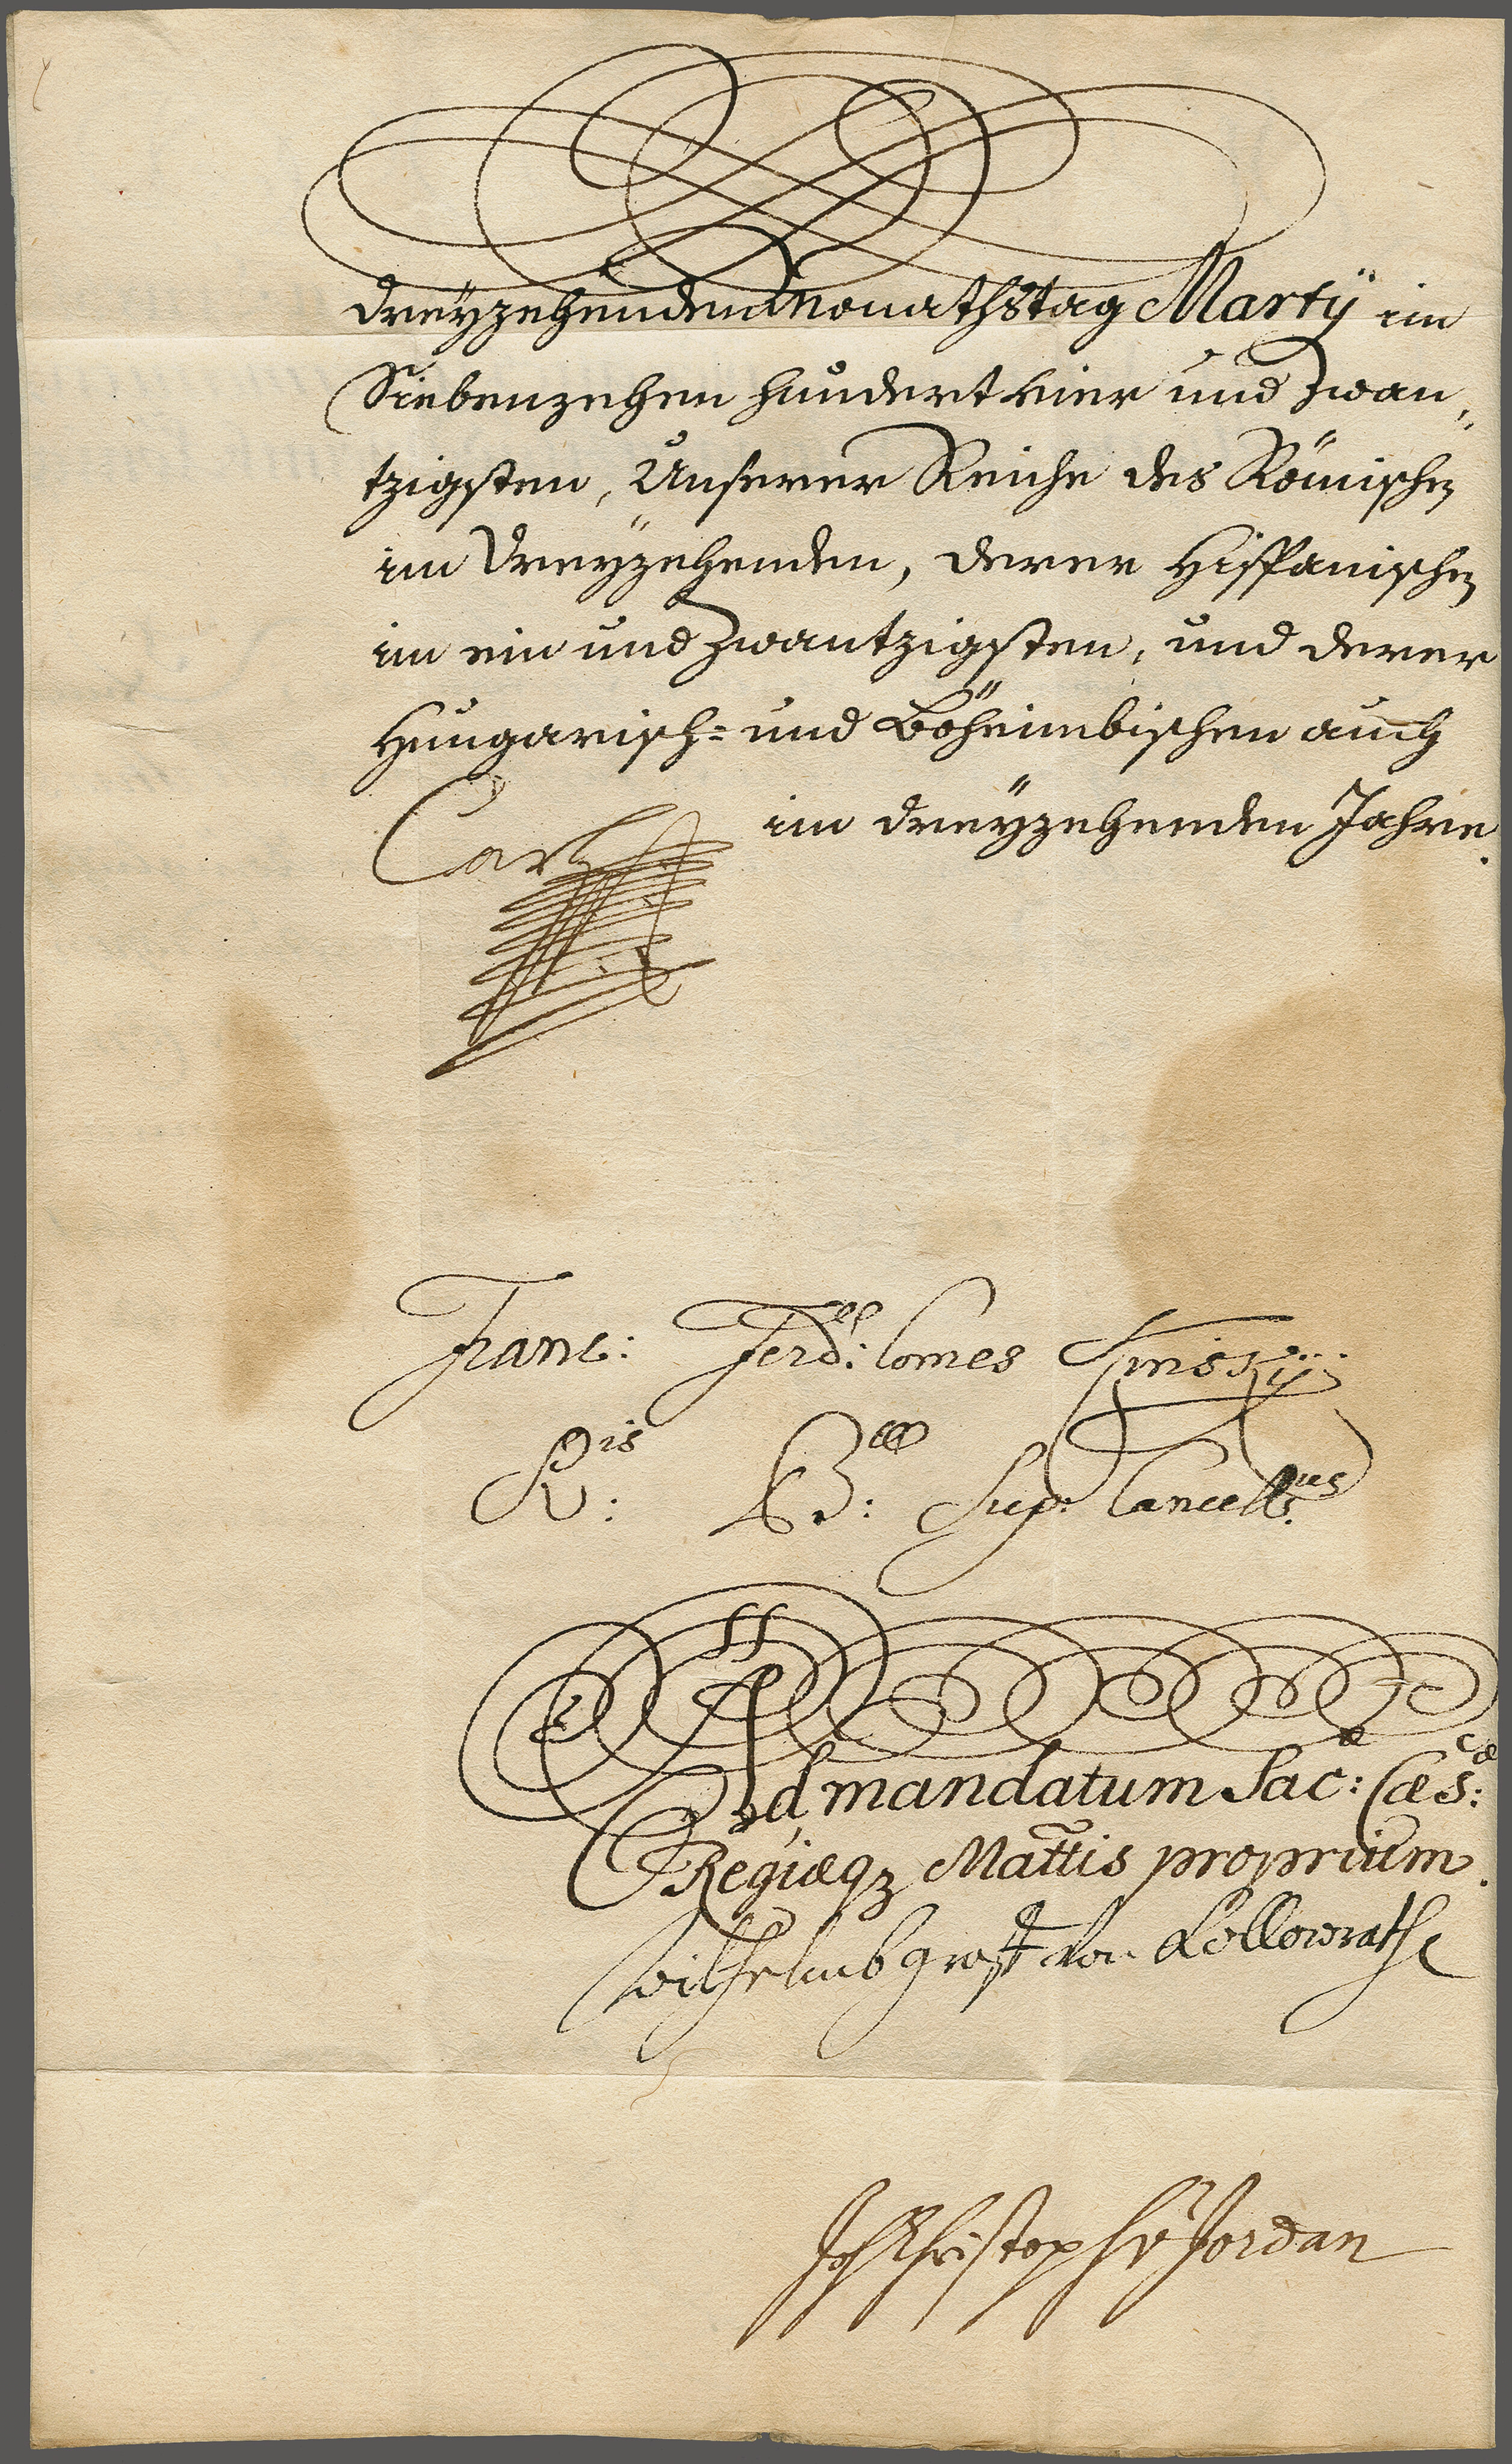 dreÿzehenden Monathstag Martÿ im
Siebenzehen hundert vier und zwan„
tzigsten, Unserer Reiche des Römischen
im Dreÿzehenden, derer Hispanischen
im ein und zwantzigsten, und derer
Hungarisch= und Böheimbischen auch
im dreÿzehenden Jahre.
Carl
Franc: Ferd: Comes Kinskÿ
R:is B: Sup: Cancell:us
Ad mandatum Sac:æ Cæs:eæ
Regiæqz Mattis proprium.
Wilhelmb graff von Kollowrath
Joh Christoph v Jordan